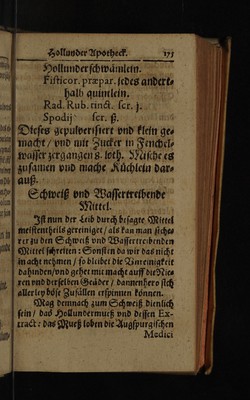 Hollunder Apotheck. 175
Hollunderschwämlein.
Fisticor. præpar. jedes andert-
halb quintlein.
Rad. Rub. tinct. scr. j.
Spodij scr. ß.
Dieses gepulverisiert vnd klein ge-
macht / vnd mit Zucker in Fenchel-
wasser zergangen 8. loth. Mische es
zusamen vnd mache Küchlein dar-
auß.
Schweiß vnd Wassertreibende
Mittel.
Ist nun der Leib durch besagte Mittel
meistentheils gereiniget / als kan man siche-
rer zu den Schweiß vnd Wassertreibenden
Mittel schreiten: Sonsten da wir das nicht
in acht nehmen / so bleibet die Vnreinigkeit
dahinden / vnd gehet mit macht auff die Nie-
ren vnd derselben Geäder / dannenhero sich
allerley böse Zufällen erspinnen können.
Mag demnach zum Schweiß dienlich
sein / das Hollundermuß vnd dessen Ex-
tract: das Mueß loben die Augspurgischen
Medici